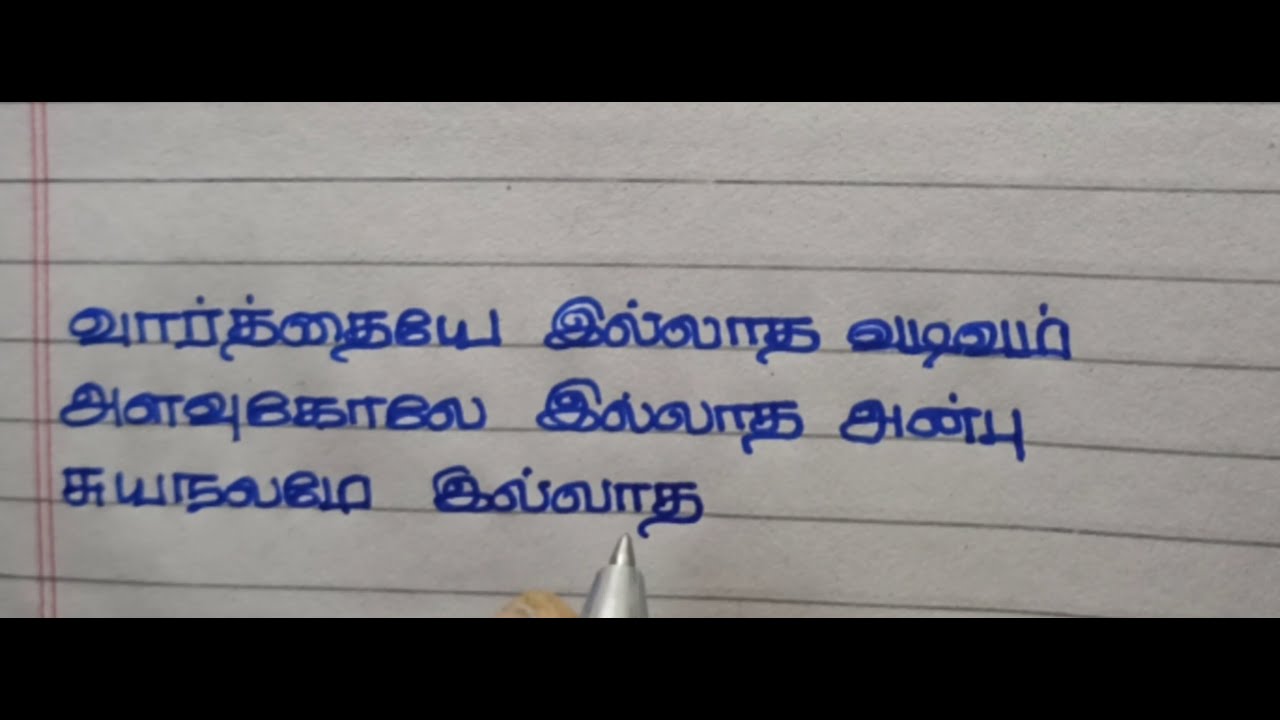 வார்த்தையே இல்லாத வடிவம்
அளவுகோலே இல்லாத அன்பு
சுயநலமே இல்லாத